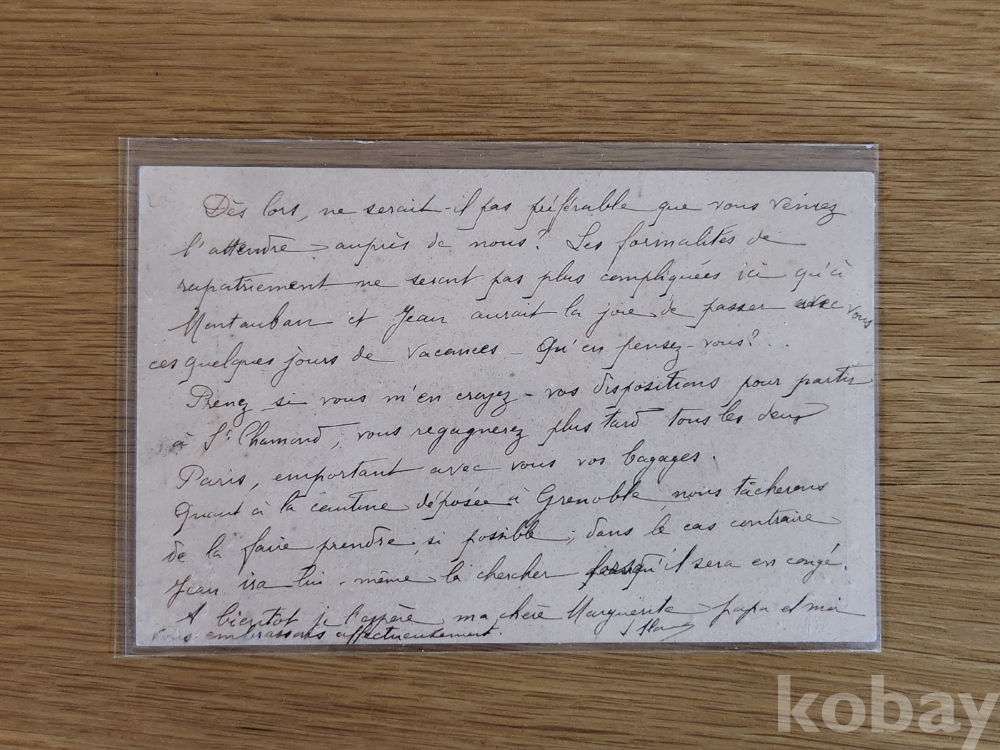 Dès lors, ne serait-il pas préférable que vous veniez
l'attendre auprès de nous? Les formalités de
rapatriement ne seront pas plus compliquées ici qu'à
Montauban et Jean aurait la joie de passer avec vous
ces quelques jours de vacances - Qu'en pensez-vous?...
Prenez si vous m'en croyez - vos dispositions pour partir
à St Chamond, vous regagnerez plus tard tous les deux
Paris, emportant avec vous vos bagages.
Quant à la cantine déposée à Grenoble, nous tâcherons
de la faire prendre, si possible; dans le cas contraire
Jean ira lui-même la chercher lorsqu'il sera en congé.
A bientôt je l'espère ma chère Marguerite papa et moi
vous embrassons affectueusement.
kobay